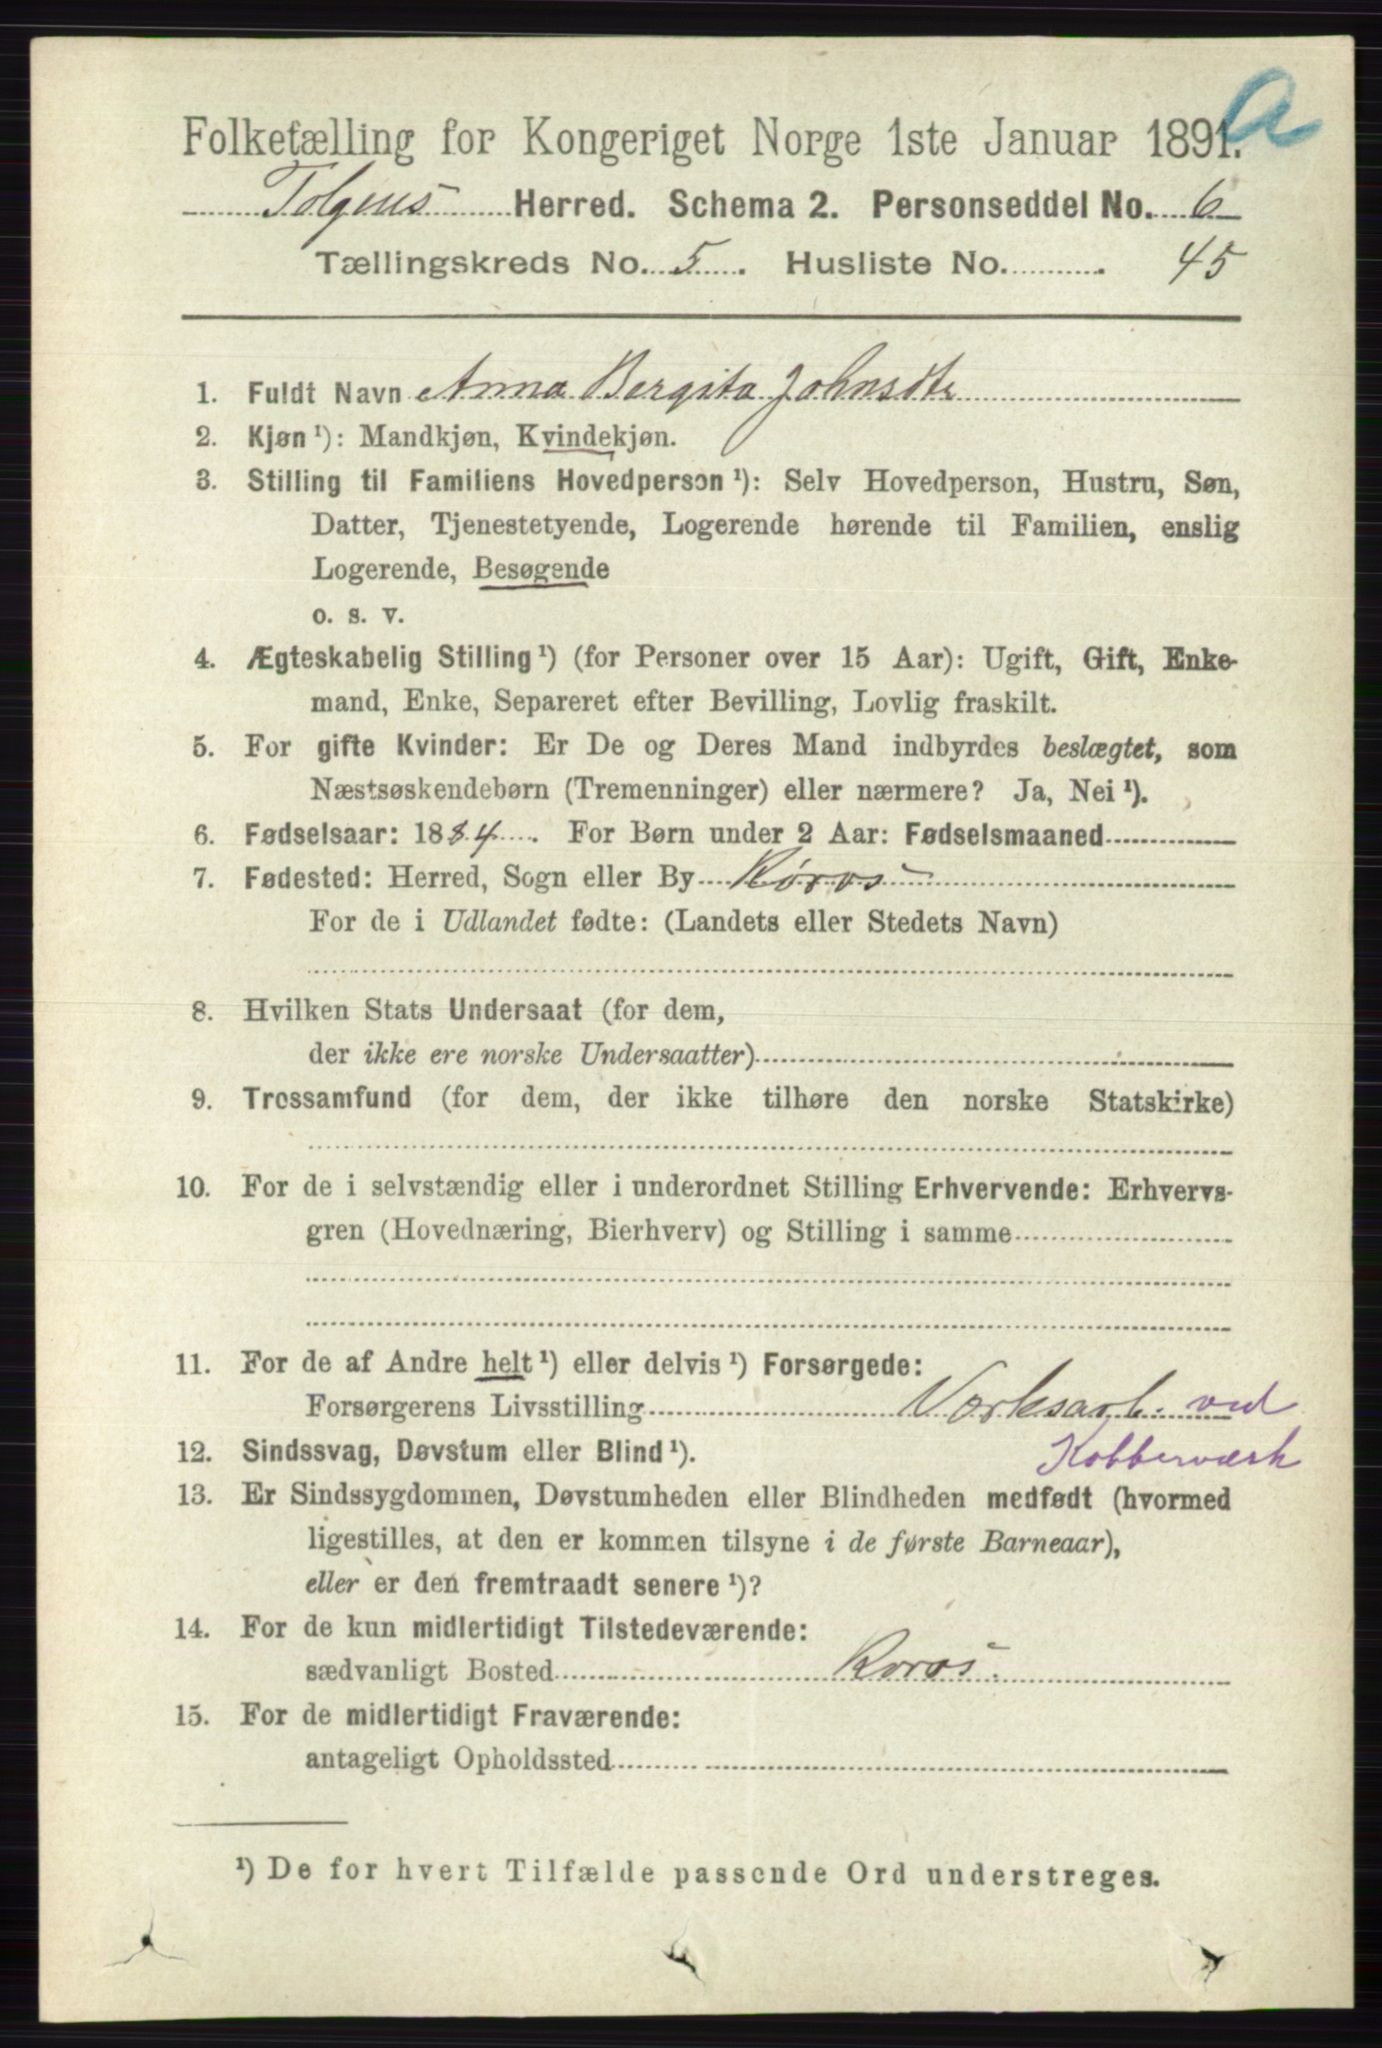 a
Folketælling for Kongeriget Norge 1ste Januar 1891.
Tolgens Herred. Schema 2. Personseddel No. 6
Tællingskreds No. 5. Husliste No. 45
1. Fuldt Navn Anna Bergita Johnsdtr
2. Kjøn ¹): Mandkjøn, Kvindekjøn.
3. Stilling til Familiens Hovedperson ¹): Selv Hovedperson, Hustru, Søn,
Datter, Tjenestetyende, Logerende hørende til Familien, enslig
Logerende, Besøgende
o. s. v.
4. Ægteskabelig Stilling ¹) (for Personer over 15 Aar): Ugift, Gift, Enke-
mand, Enke, Separeret efter Bevilling, Lovlig fraskilt.
5. For gifte Kvinder: Er De og Deres Mand indbyrdes beslægtet, som
Næstsøskendebørn (Tremenninger) eller nærmere? Ja, Nei ¹).
6. Fødselsaar: 1884. For Børn under 2 Aar: Fødselsmaaned
7. Fødested: Herred, Sogn eller By Røros
For de i Udlandet fødte: (Landets eller Stedets Navn)
8. Hvilken Stats Undersaat (for dem,
der ikke ere norske Undersaatter)
9. Trossamfund (for dem, der ikke tilhøre den norske Statskirke)
10. For de i selvstændig eller i underordnet Stilling Erhvervende: Erhvervs-
gren (Hovednæring, Bierhverv) og Stilling i samme
11. For de af Andre helt ¹) eller delvis ¹) Forsørgede:
Forsørgerens Livsstilling Værksarb. ved
Kobberværk
12. Sindssvag, Døvstum eller Blind ¹).
13. Er Sindssygdommen, Døvstumheden eller Blindheden medfødt (hvormed
ligestilles, at den er kommen tilsyne i de første Barneaar),
eller er den fremtraadt senere ¹)?
14. For de kun midlertidigt Tilstedeværende:
sædvanligt Bosted Roros.
15. For de midlertidigt Fraværende:
antageligt Opholdssted
¹) De for hvert Tilfælde passende Ord understreges.